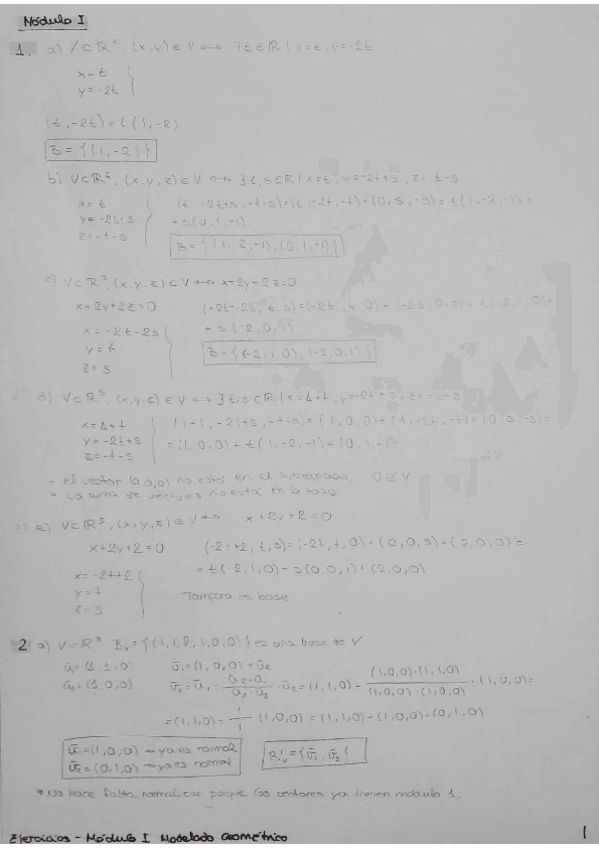 Módulo I
1. a) V⊂ℝ², (x,y)∈V ⟷ ∃t∈ℝ | x=t, y=-2t
x=t
y=-2t
(t,-2t)=t(1,-2)
B={(1,-2)}
b) V⊂ℝ³, (x,y,z)∈V ⟷ ∃t,s∈ℝ | x=t, y=-2t+s, z=-t-s
x=t
y=-2t+s
z=-t-s
(t,-2t+s,-t-s)=(t,-2t,-t)+(0,s,-s)=t(1,-2,-1)+
+s(0,1,-1)
B={(1,-2,-1),(0,1,-1)}
c) V⊂ℝ³, (x,y,z)∈V ⟷ x+2y+2z=0
x+2y+2z=0
(-2t-2s,t,s)=(-2t,t,0)+(-2s,0,s)=t(-2,1,0)+
+s(-2,0,1)
x=-2t-2s
y=t
z=s
B={(-2,1,0),(-2,0,1)}
d) V⊂ℝ³, (x,y,z)∈V ⟷ ∃t,s∈ℝ | x=1+t, y=-2t+s, z=-t-s
x=1+t
y=-2t+s
z=-t-s
(1+t,-2t+s,-t-s)=(1,0,0)+(t,-2t,-t)+(0,s,-s)=
=(1,0,0)+t(1,-2,-1)+(0,1,-1)
- el vector (0,0,0) no está en el subespacio. 0∉V
- La suma de vectores no está en la base
e) V⊂ℝ³, (x,y,z)∈V ⟷ x+2y+2=0
x+2y+2=0
(-2t+2,t,s)=(-2t,t,0)+(0,0,s)+(2,0,0)=
=t(-2,1,0)+s(0,0,1)+(2,0,0)
x=-2t+2
y=t
z=s
Tampoco base
2 a) V=ℝ³ Bᵥ={(1,1,0),(1,0,0)} es una base de V
ū₁=(1,1,0)
ū₂=(1,0,0)
v̄₁=(1,0,0)=ū₂
(1,0,0)·(1,1,0)
(1,0,0)·(1,0,0)
=(1,1,0)-1/1·(1,0,0)=(1,1,0)-(1,0,0)=(0,1,0)
v̄₁=(1,0,0) → ya es normal
v̄₂=(0,1,0) → ya es normal
B'ᵥ={v̄₁,v̄₂}
*No hace falta normalizar porque los vectores ya tienen módulo 1.
Ejercicios - Módulo I Modelado Geométrico
1